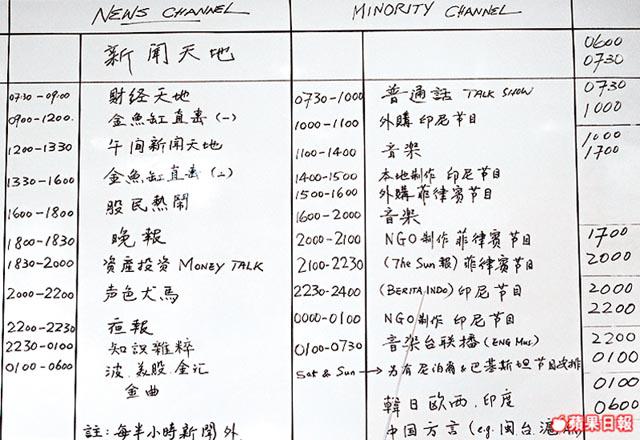 NEWS CHANNEL
MINORITY CHANNEL
新聞天地
0600
0730
0730-0900 財经天地
0730-1000 普通話 TALK SHOW
0730
1000
0900-1200. 金魚缸直击 (一)
1000-1100 外購印尼节目
1200-1330 午间新聞天地
1100-1400 音楽
1000
1700
1330-1600 金魚缸直击 (二)
1400-1500 本地制作 印尼节目
1500-1600 外購菲律賓节目
1600-1800 股民熱鬧
1600-2000 音楽
1800-1830 晚報
2000-2100 NGO制作菲律賓节目
1700
2000
1830-2000 資產投资 MONEY TALK
2100-2230 (The Sun 報) 菲律賓节目
2000-2200 声色犬馬
2230-2400 (BERITA INDO) 印尼节目
2000
2200
2200-2230 夜報
0000-0100 NGO 制作 印尼节目
2230-0100 知識雜粹
0100-0730 音楽台联播 (ENG Mus.)
2200
0100
0100-0600 波.美股.金汇
金曲
Sat & Sun → 另有尼泊爾&巴基斯坦节目
0100
0600
韓日欧西.印度
註:每半小時新聞外
中国方言 (e.g. 闽台,滬
蘋果日報